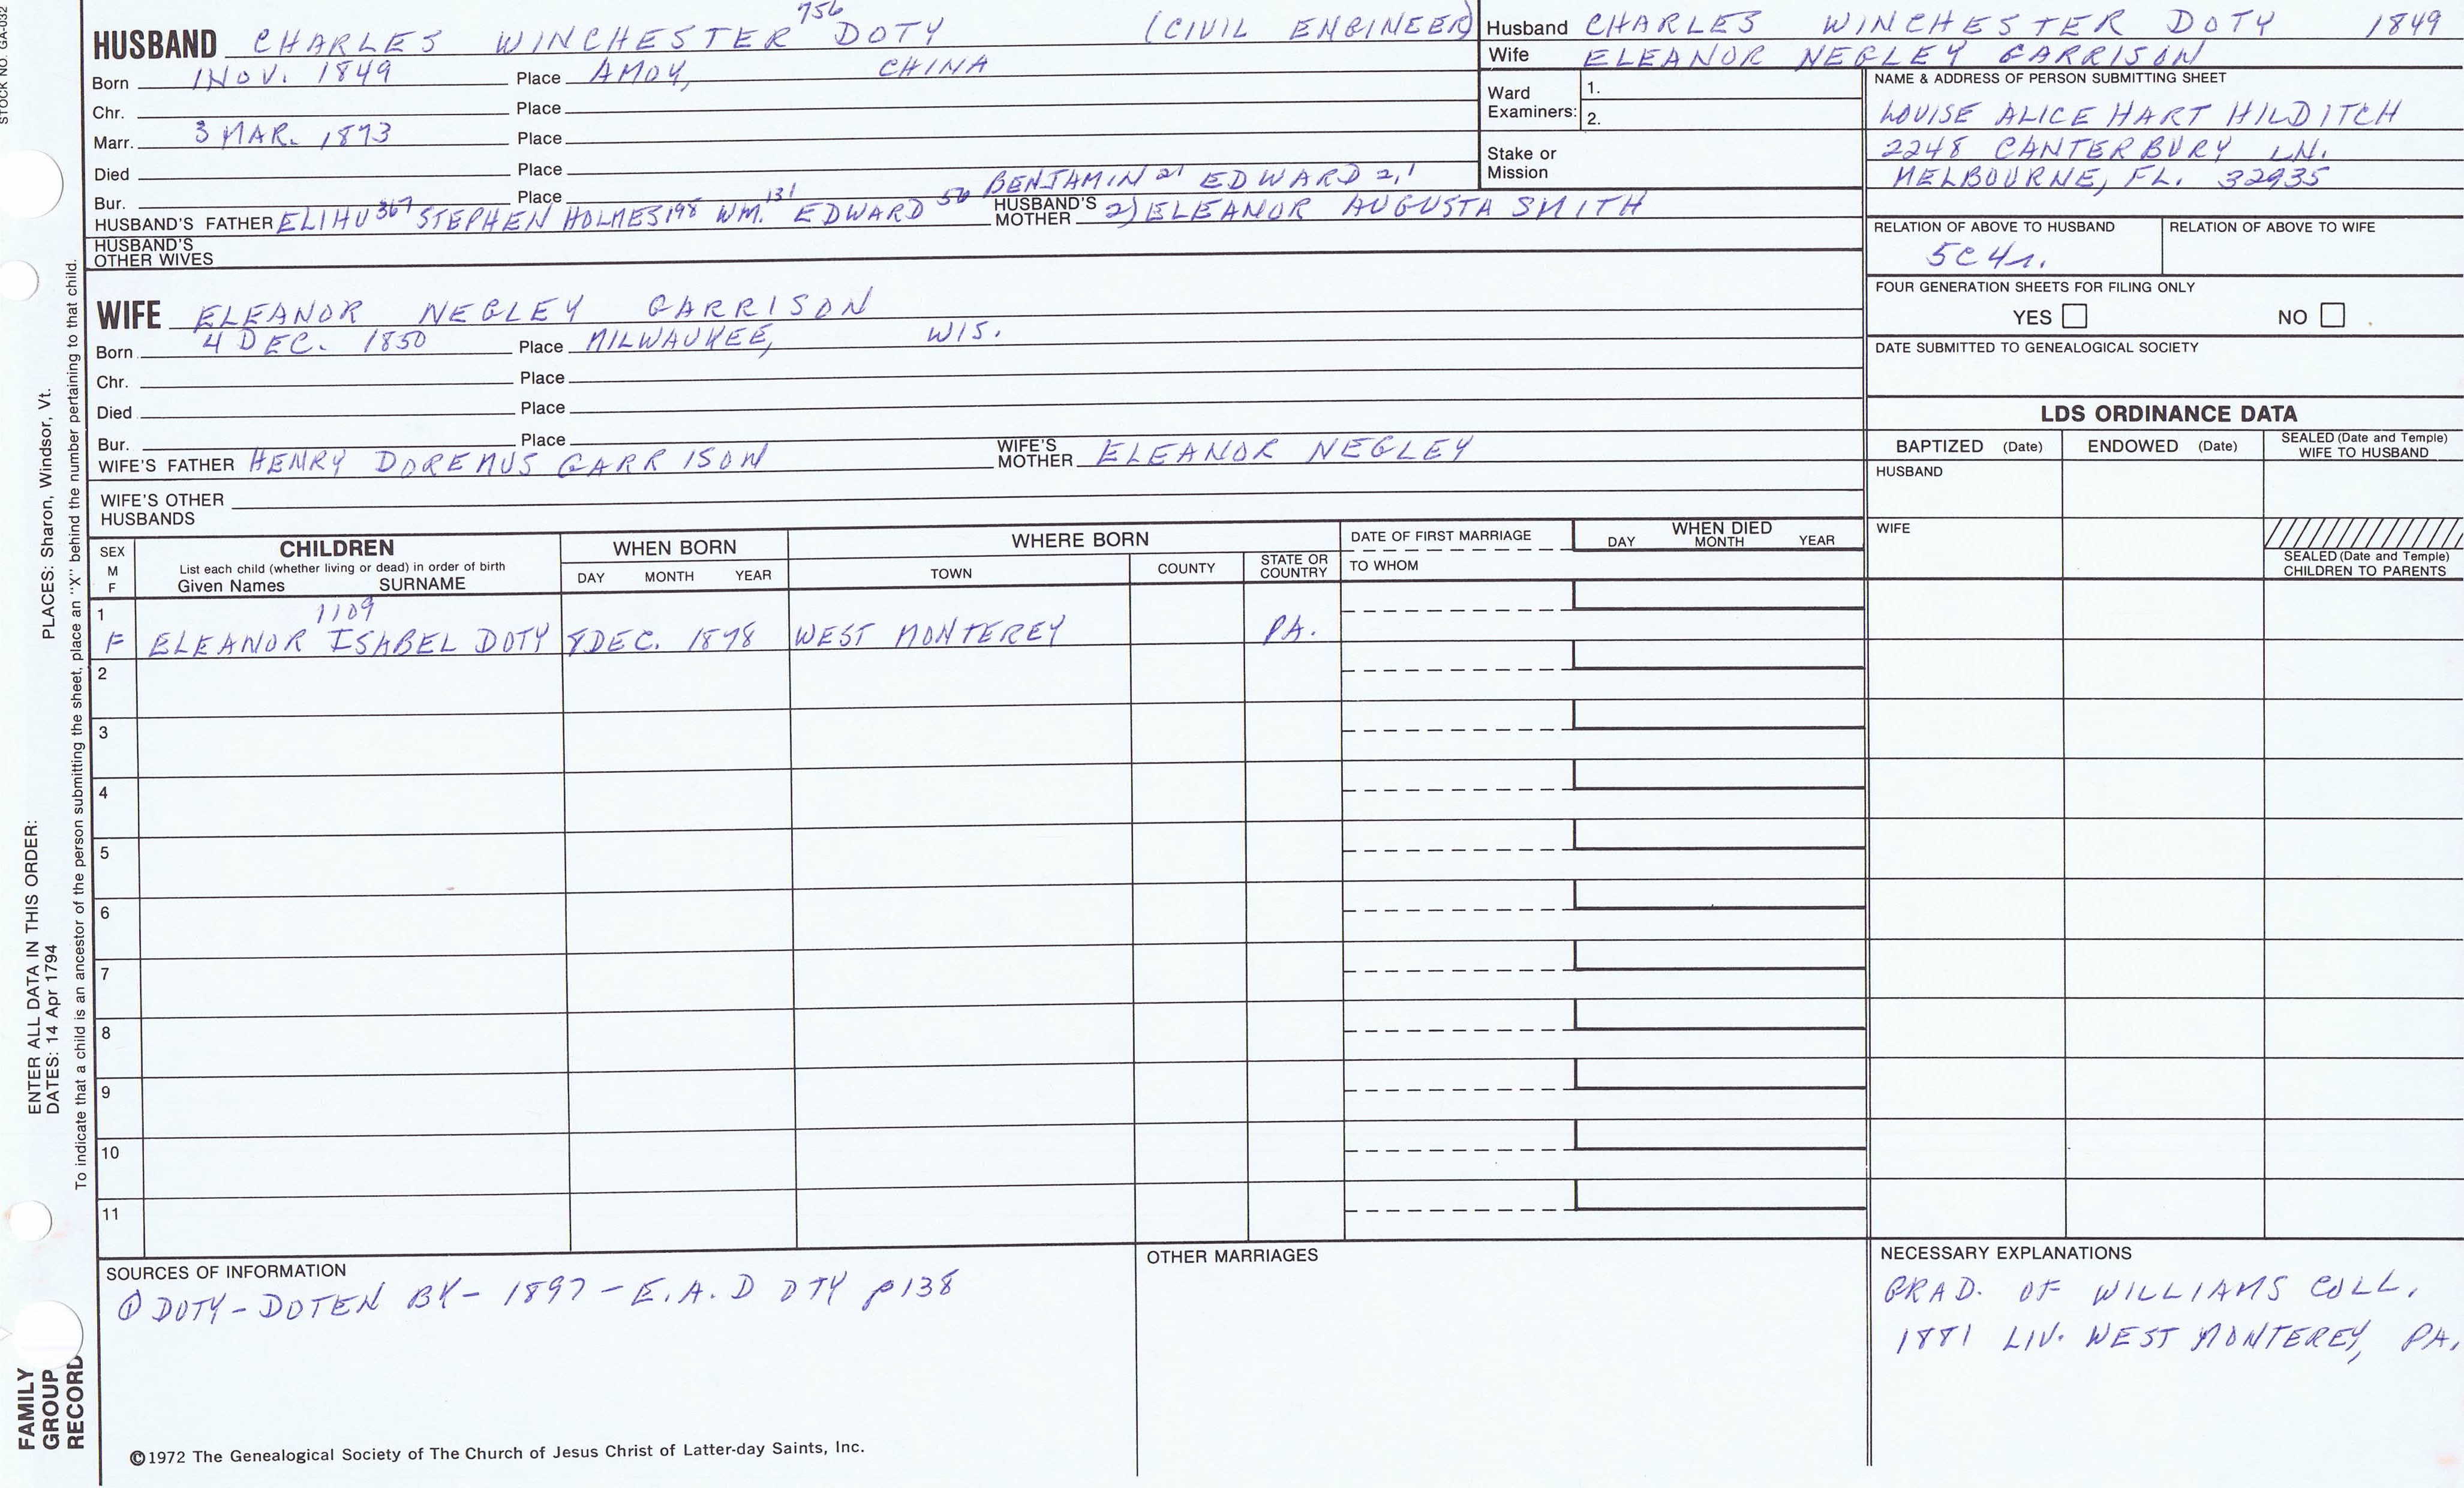 STOCK NO. GA-032
756
HUSBAND CHARLES WINCHESTER DOTY (CIVIL ENGINEER)
Born 1 NOV. 1849 Place AMOY, CHINA
Chr. Place
Marr. 3 MAR. 1873 Place
Died Place
Bur. Place BENJAMIN 21 EDWARD 2,1
HUSBAND'S FATHER ELIHU 367 STEPHEN HOLMES 198 WM. 131 EDWARD 50 HUSBAND'S MOTHER 2) ELEANOR AUGUSTA SMITH
HUSBAND'S OTHER WIVES
WIFE ELEANOR NEGLEY GARRISON
Born 4 DEC. 1850 Place MILWAUKEE, WIS.
Chr. Place
Died Place
Bur. Place
WIFE'S FATHER HENRY DOREMUS GARRISON WIFE'S MOTHER ELEANOR NEGLEY
WIFE'S OTHER HUSBANDS
Husband CHARLES WINCHESTER DOTY 1849
Wife ELEANOR NEGLEY GARRISON
Ward Examiners: 1.
2.
Stake or Mission
NAME & ADDRESS OF PERSON SUBMITTING SHEET
LOUISE ALICE HART HILDITCH
2248 CANTERBURY LN.
MELBOURNE, FL. 32935
RELATION OF ABOVE TO HUSBAND RELATION OF ABOVE TO WIFE
5C4r.
FOUR GENERATION SHEETS FOR FILING ONLY
YES NO
DATE SUBMITTED TO GENEALOGICAL SOCIETY
LDS ORDINANCE DATA
BAPTIZED (Date) ENDOWED (Date) SEALED (Date and Temple) WIFE TO HUSBAND
HUSBAND
WIFE
SEALED (Date and Temple) CHILDREN TO PARENTS
SEX M F CHILDREN WHEN BORN WHERE BORN DATE OF FIRST MARRIAGE WHEN DIED
List each child (whether living or dead) in order of birth
Given Names SURNAME DAY MONTH YEAR TOWN COUNTY STATE OR COUNTRY TO WHOM DAY MONTH YEAR
1 1109
F ELEANOR ISABEL DOTY 8 DEC. 1878 WEST MONTEREY PA.
2
3
4
5
6
7
8
9
10
11
SOURCES OF INFORMATION
① DOTY-DOTEN BY- 1897 - E.A. DOTY p138
OTHER MARRIAGES
NECESSARY EXPLANATIONS
GRAD. OF WILLIAMS COLL.
1881 LIV. WEST MONTEREY, PA.
©1972 The Genealogical Society of The Church of Jesus Christ of Latter-day Saints, Inc.
FAMILY GROUP RECORD
ENTER ALL DATA IN THIS ORDER:
DATES: 14 Apr 1794
PLACES: Sharon, Windsor, Vt.
To indicate that a child is an ancestor of the person submitting the sheet, place an "X" behind the number pertaining to that child.